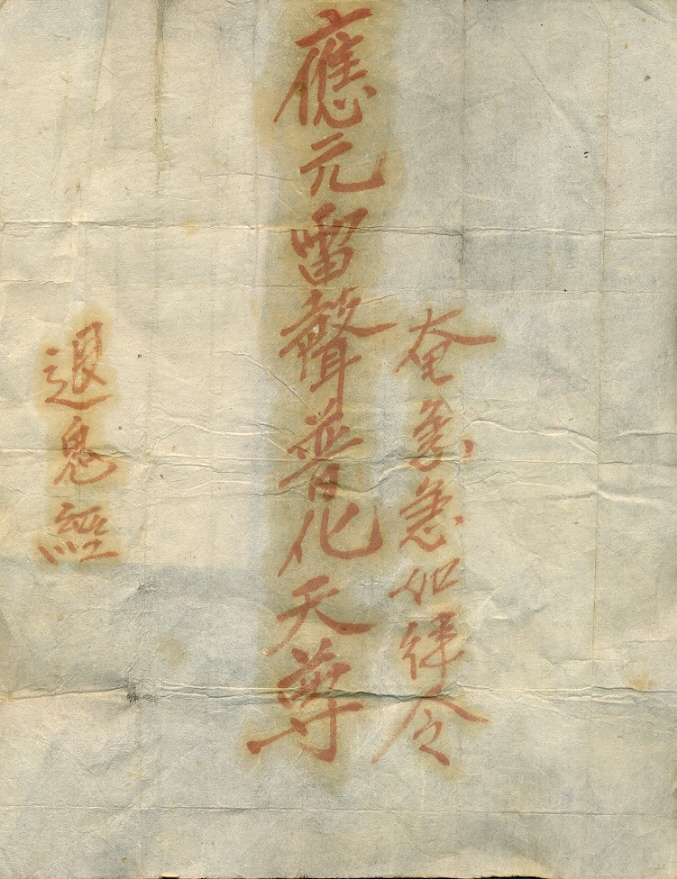 奄急急如律令
應元雷聲普化天尊
退鬼經